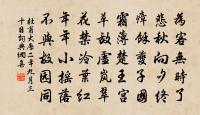 為客無時了
悲秋向夕終
瘴餘夔子國
霜薄楚王宮
草敵虛嵐翠
花禁冷葉紅
年年小搖落
不與故園同
杜甫大曆二年九月三
十日詞典網集